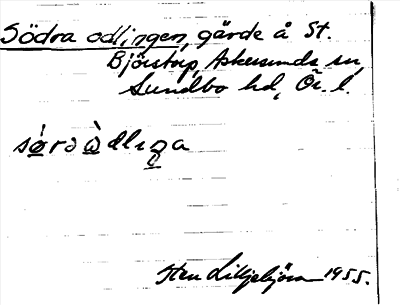 Södra odlingen, gärde å St.
Björstorp, Askersunds sn,
Sundbo hd, Ör. l.
sørə ὼdlıŋa
Sten Liljebjörn 1955.